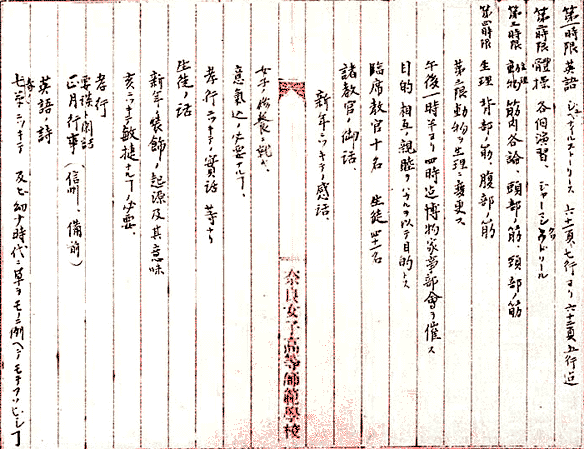 第一時限 英語 ジェネラルストーリース 六十一頁七行ヨリ六十三頁五行迄
第二時限 體操 各個演習、ジャーマンクヮドリール
第三時限 動物生理 筋肉各論、頭部ノ筋、頸部ノ筋
第四時限 生理 背部ノ筋、腹部ノ筋
第三限動物ヲ生理ニ變更ス
午後一時半ヨリ四時迄博物家事部會ヲ催ス
目的 相互ノ親睦ヲハカルヲ以テ目的トス
臨席教官十名 生徒四十一名
諸教官ノ御話、
新年ニツキテノ感話
奈良女子高等師範學校
女子ノ
意氣込ノ必要ナルコト、
孝行ニツキテノ實話 等ナリ
生徒ノ話
新年ノ装飾ノ起源及其意味
亥ニツキテ 敏捷ナルコトノ必要、
孝行
正月行事(、信州、備前)
英語ノ詩
七草ニツキテ 及ビ幼少時代ニ草ヲ